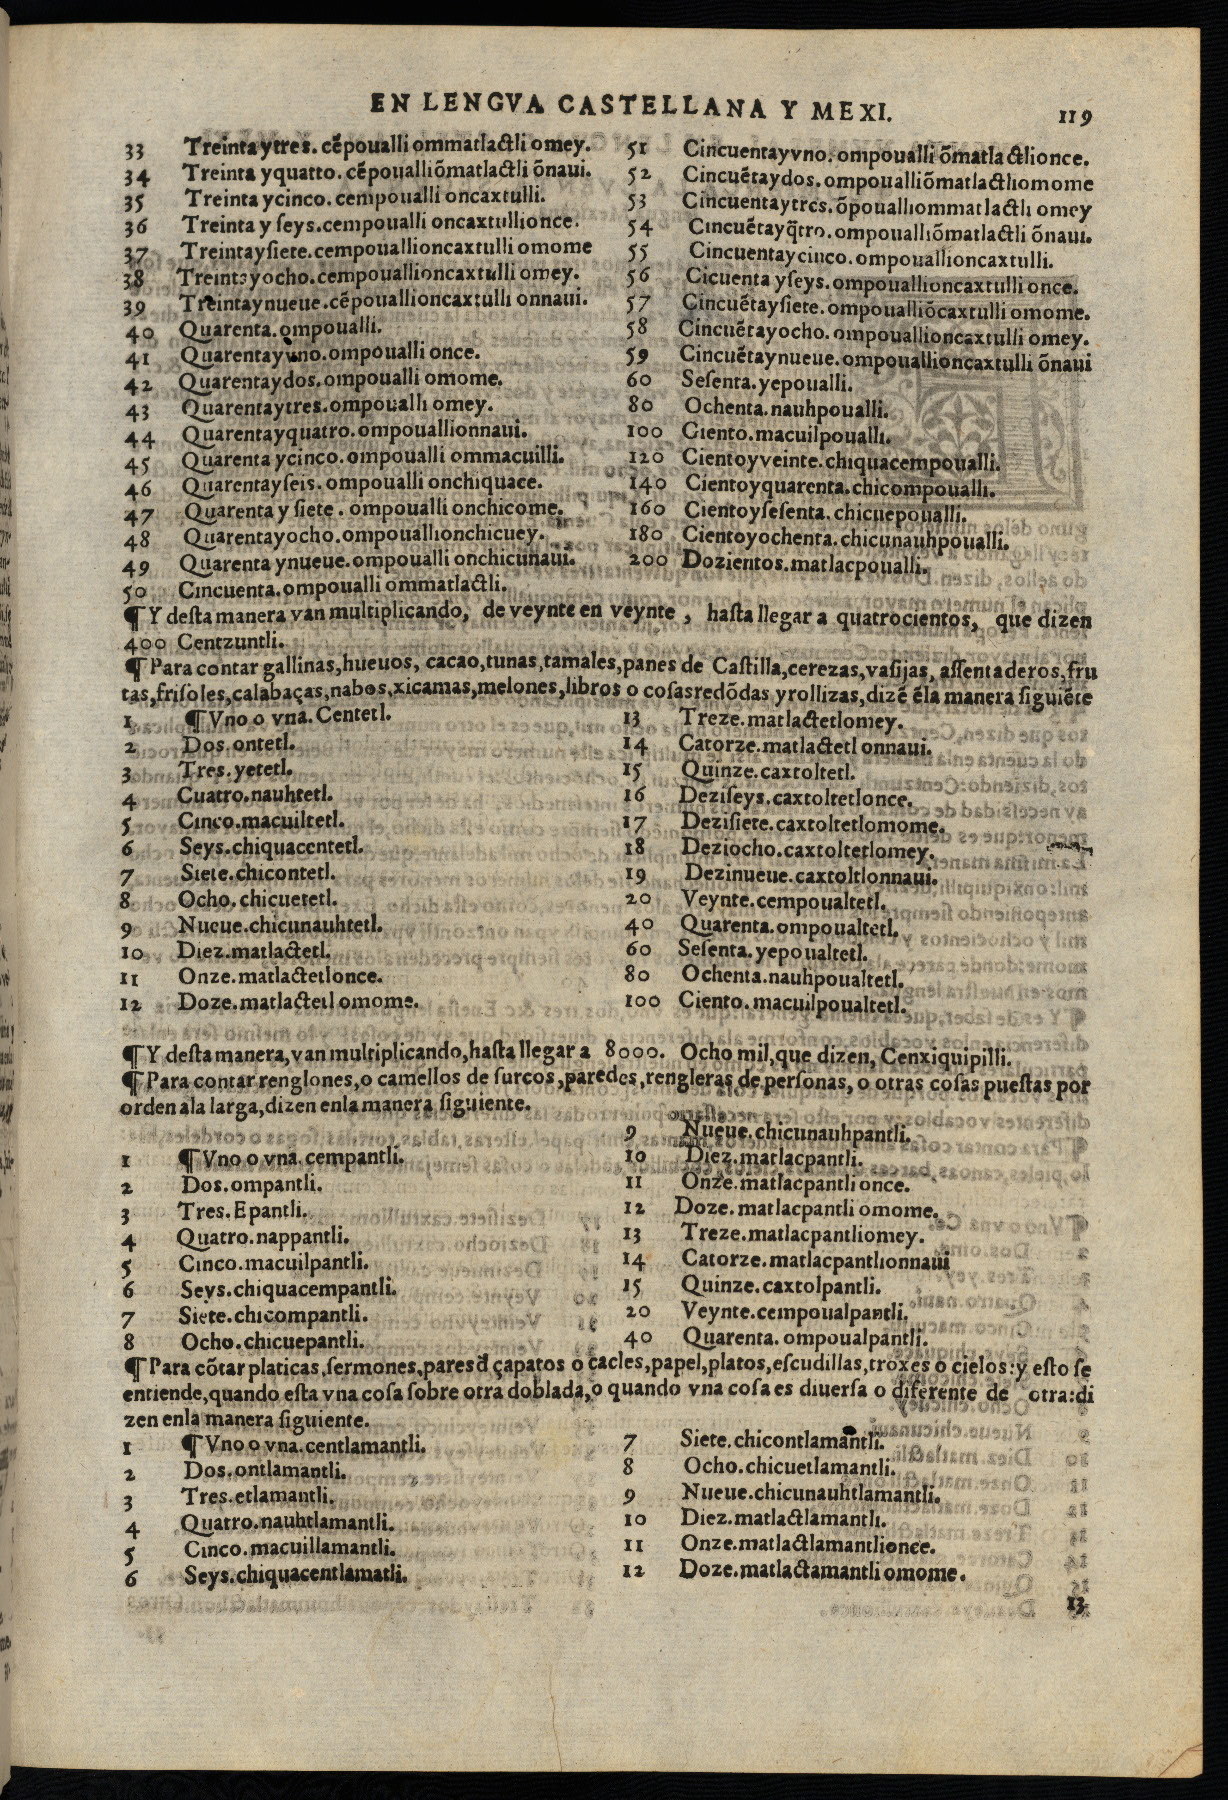 EN LENGVA CASTELLANA Y MEXI.
119
33 Treintaytres. cẽpoualli ommatlactli omey.
34 Treinta yquatto. cẽpoualliõmatlactli õnaui.
35 Treinta ycinco. cempoualli oncaxtulli.
36 Treinta y ſeys. cempoualli oncaxtullionce.
37 Treintayſiete. cempouallioncaxtulli omome
38 Treintayocho. cempouallioncaxtulli omey.
39 Treintaynueue. cẽpouallioncaxtulli onnaui.
40 Quarenta. ompoualli.
41 Quarentayvno. ompoualli once.
42 Quarentaydos. ompoualli omome.
43 Quarentaytres. ompoualli omey.
44 Quarentayquatro. ompouallionnaui.
45 Quarenta ycinco. ompoualli ommacuilli.
46 Quarentayſeis. ompoualli onchiquace.
47 Quarenta y ſiete. ompoualli onchicome.
48 Quarentayocho. ompouallionchicuey.
49 Quarenta ynueue. ompoualli onchicunaui.
50 Cincuenta. ompoualli ommatlactli.
51 Cincuentayvno. ompoualli õmatlactlionce.
52 Cincuẽtaydos. ompoualliõmatlactliomome
53 Cincuentaytres. õpoualliommatlactli omey
54 Cincuẽtayq̃tro. ompoualliõmatlactli õnaui.
55 Cincuentaycinco. ompouallioncaxtulli.
56 Cicuenta yſeys. ompouallioncaxtulli once.
57 Cincuẽtayſiete. ompoualliõcaxtulli omome.
58 Cincuẽtayocho. ompouallioncaxtulli omey.
59 Cincuẽtaynueue. ompouallioncaxtulli õnaui
60 Seſenta. yepoualli.
80 Ochenta. nauhpoualli.
100 Ciento. macuilpoualli.
120 Cientoyveinte. chiquacempoualli.
140 Cientoyquarenta. chicompoualli.
160 Cientoyſeſenta. chicuepoualli.
180 Cientoyochenta. chicunauhpoualli.
200 Dozientos. matlacpoualli.
¶ Y deſta manera van multiplicando, de veynte en veynte, haſta llegar a quatrocientos, que dizen
400 Centzuntli.
¶ Para contar gallinas, hueuos, cacao, tunas, tamales, panes de Caſtilla, cerezas, vaſijas, aſſentaderos, fru
tas, friſoles, calabaças, nabos, xicamas, melones, libros o coſasredõdas yrollizas, dizẽ ẽla manera ſiguiẽte
1 ¶ Vno o vna. Centetl.
2 Dos. ontetl.
3 Tres. yetetl.
4 Cuatro. nauhtetl.
5 Cinco. macuiltetl.
6 Seys. chiquacentetl.
7 Siete. chicontetl.
8 Ocho. chicuetetl.
9 Nueue. chicunauhtetl.
10 Diez. matlactetl.
11 Onze. matlactetlonce.
12 Doze. matlactetl omome.
13 Treze. matlactetlomey.
14 Catorze. matlactetl onnaui.
15 Quinze. caxtoltetl.
16 Deziſeys. caxtoltetlonce.
17 Deziſiete. caxtoltetlomome.
18 Deziocho. caxtoltetlomey.
19 Dezinueue. caxtoltlonnaui.
20 Veynte. cempoualtetl.
40 Quarenta. ompoualtetl.
60 Seſenta. yepoualtetl.
80 Ochenta. nauhpoualtetl.
100 Ciento. macuilpoualtetl.
¶ Y deſta manera, van multiplicando, haſta llegar a 8000. Ocho mil, que dizen, Cenxiquipilli.
¶ Para contar renglones, o camellos de ſurcos, paredes, rengleras de perſonas, o otras coſas pueſtas por
orden ala larga, dizen enla manera ſiguiente.
1 ¶ Vno o vna. cempantli.
2 Dos. ompantli.
3 Tres. Epantli.
4 Quatro. nappantli.
5 Cinco. macuilpantli.
6 Seys. chiquacempantli.
7 Siete. chicompantli.
8 Ocho. chicuepantli.
9 Nueue. chicunauhpantli.
10 Diez. matlacpantli.
11 Onze. matlacpantli once.
12 Doze. matlacpantli omome.
13 Treze. matlacpantliomey.
14 Catorze. matlacpantlionnaui
15 Quinze. caxtolpantli.
20 Veynte. cempoualpantli.
40 Quarenta. ompoualpantli.
¶ Para cõtar platicas, ſermones, pares đ çapatos o cacles, papel, platos, eſcudillas, troxes o cielos: y eſto ſe
entiende, quando eſta vna coſa ſobre otra doblada, o quando vna coſa es diuerſa o diferente de otra: di
zen enla manera ſiguiente.
1 ¶ Vno o vna. centlamantli.
2 Dos. ontlamantli.
3 Tres. etlamantli.
4 Quatro. nauhtlamantli.
5 Cinco. macuillamantli.
6 Seys. chiquacentlamatli.
7 Siete. chicontlamantli.
8 Ocho. chicuetlamantli.
9 Nueue. chicunauhtlamantli.
10 Diez. matlactlamantli.
11 Onze. matlactlamantlionce.
12 Doze. matlactamantli omome.
13